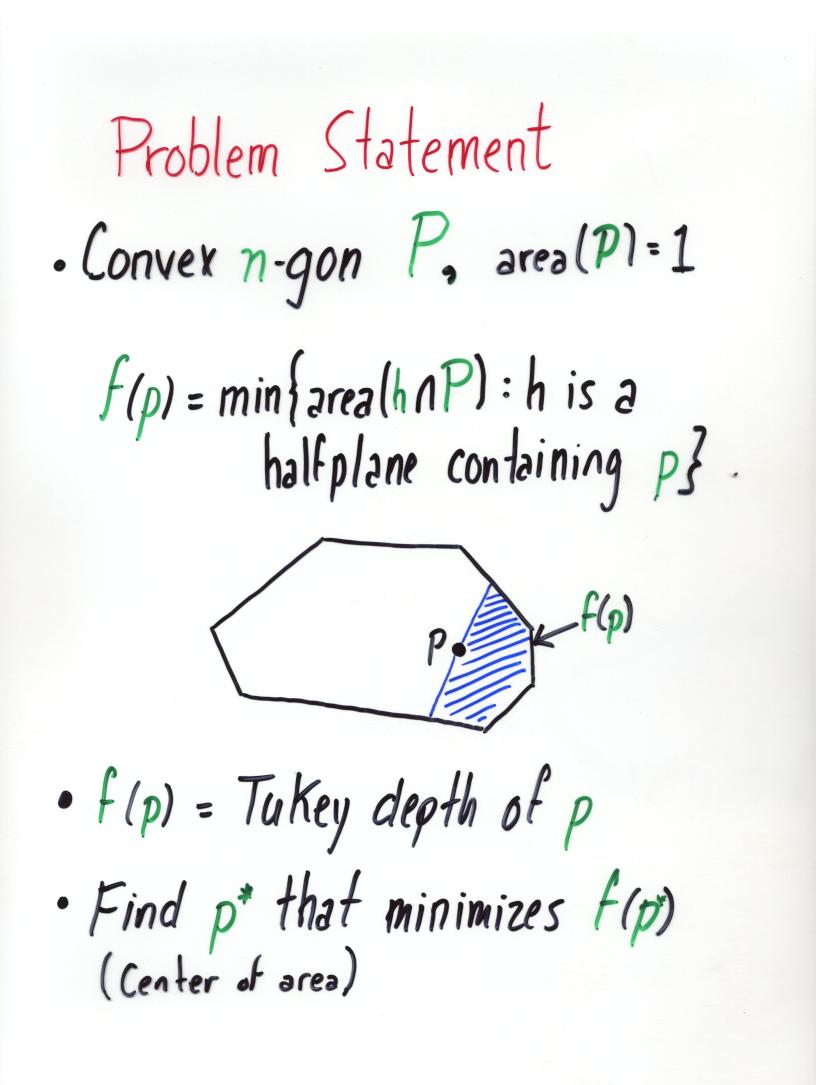 Problem Statement
• Convex n-gon P, area(P) = 1
f(p) = min{area(h∩P) : h is a
halfplane containing p}.
P
f(p)
• f(p) = Tukey depth of p
• Find p* that minimizes f(p*)
(Center of area)